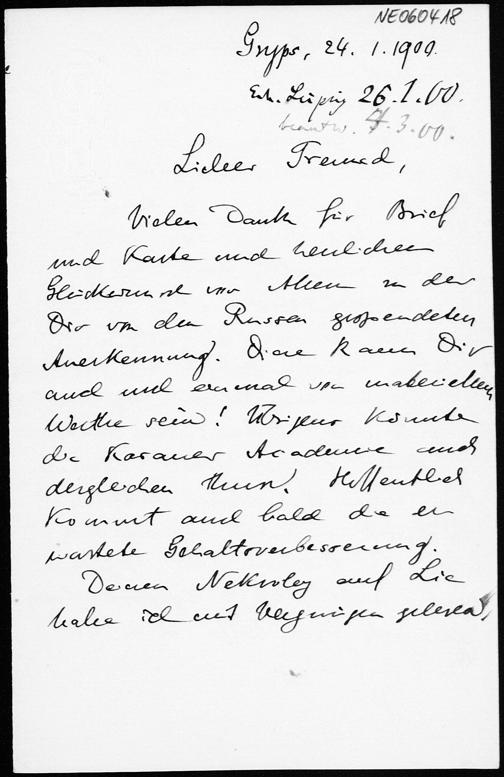 NE060418
Gryps, 24. 1. 1900.
Erh. Leipzig 26.1.00.
beantw. 4.3.00.
Lieber Freund,
Vielen Dank für Brief
und Karte und herzlichen
Glückwunsch vor Allem zu der
Dir von den Russen gespendeten
Anerkennung. Diese kann Dir
auch noch einmal von materiellem
Werthe sein! Übrigens könnte
die Kasaner Academie auch
dergleichen thun! Hoffentlich
kommt auch bald die er
wartete Gehaltsverbesserung.
Deinen Nekrolog auf Lie
habe ich mit Vergnügen gelesen,